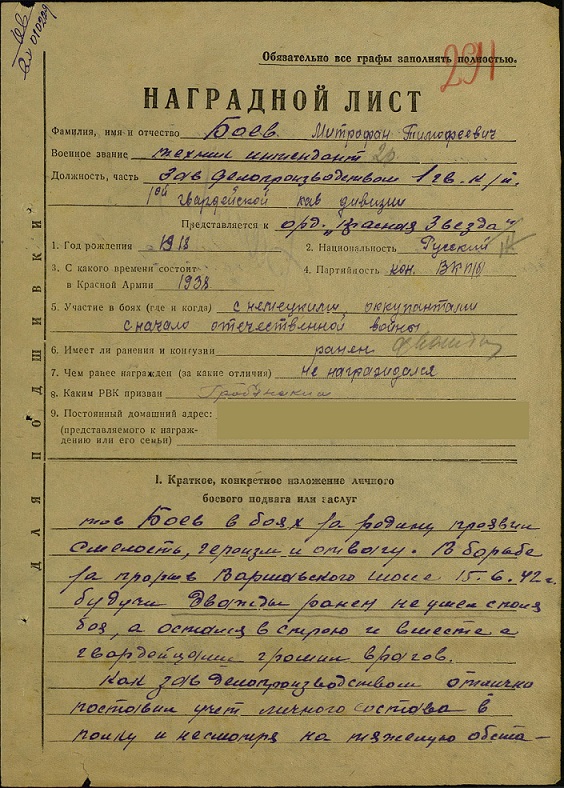 Обязательно все графы заполнять полностью.
291
НАГРАДНОЙ ЛИСТ
Фамилия, имя и отчество Боев Митрофан Тимофеевич
Военное звание техник интендант 2р.
Должность, часть Зав делопроизводством 1 гв. к/п.
1ой гвардейской кав дивизии
Представляется к орд. "Красная Звезда"
1. Год рождения 1918
2. Национальность Русский
3. С какого времени состоит
в Красной Армии 1938
4. Партийность кан. ВКП(б)
5. Участие в боях (где и когда) с немецкими оккупантами
с начало отечественной войны
6. Имеет ли ранения и контузии ранен
7. Чем ранее награжден (за какие отличия) не награждался
8. Каким РВК призван
9. Постоянный домашний адрес:
(представляемого к награж-
дению или его семьи)
ДЛЯ ПОДШИВКИ
I. Краткое, конкретное изложение личного
боевого подвига или заслуг
тов Боев в боях за родину проявил
смелость, героизм и отвагу. В борьбе
за прорыв Варшавского шоссе 15.6.42 г.
будучи дважды ранен не ушел с поля
боя, а остался в строю и вместе с
гвардейцами громил врагов.
Как зав делопроизводством отлично
поставил учет личного состава в
полку и несмотря на тяжелую обста-